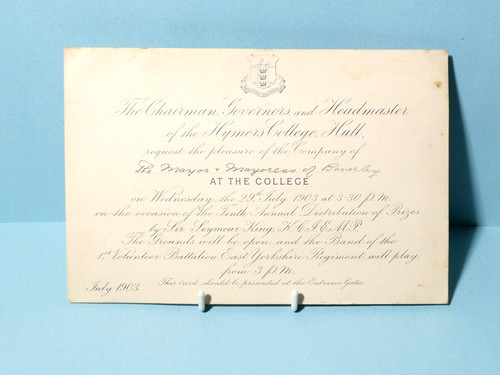 The Chairman, Governors, and Headmaster,
of the Hymers College, Hull,
request the pleasure of the Company of
The Mayor & Mayoress of Beverley
AT THE COLLEGE
on Wednesday, the 29th July, 1903 at 3-30 P.M.
on the occasion of the Tenth Annual Distribution of Prizes
by Sir Seymour King, K.C.I.E. M.P.
The Grounds will be open, and the Band of the
1st Volunteer Battalion East Yorkshire Regiment will play
from 3 P.M.
July 1903. This card should be presented at the Entrance Gates.